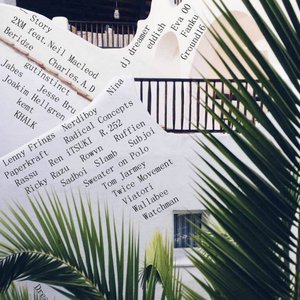 Story
2XM feat.Neil Macleod
Beridze Charles,A.D
gutinstinct
Jabes Jesse Bru
Joakim Hellgren
kemt
KHALK
Nina
dj dreamer
eddish
Eva 00
Fanku
Ground16
Lenny Frings Nerdiboy
Paperkraft Radical Concepts
Rassu Ren ITSUKI R.252
Ricky Razu Rowyn Ruffien
Sadboi Slamb Subjoi
Sweater on Polo
Tom Jarmey
Twice Movement
Viatori
Wallabee
Watchman